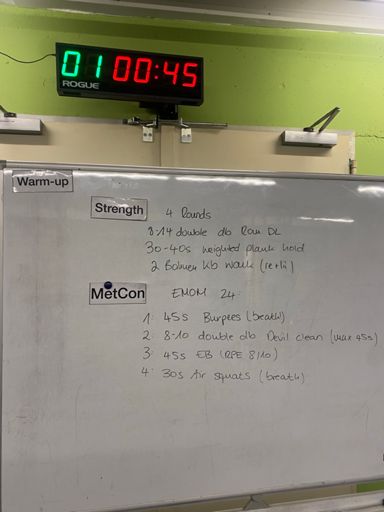 01 00:45
ROGUE
Warm-up
Strength
4 Rounds
8-14 double db Rom DL
30-40s weighted plank hold
2 Bahnen Kb walk (re+li)
MetCon
EMOM 24:
1: 45s Burpees (breath)
2: 8-10 double db Devil clean (max 45s)
3: 45s EB (RPE 8/10)
4: 30s Air squats (breath)